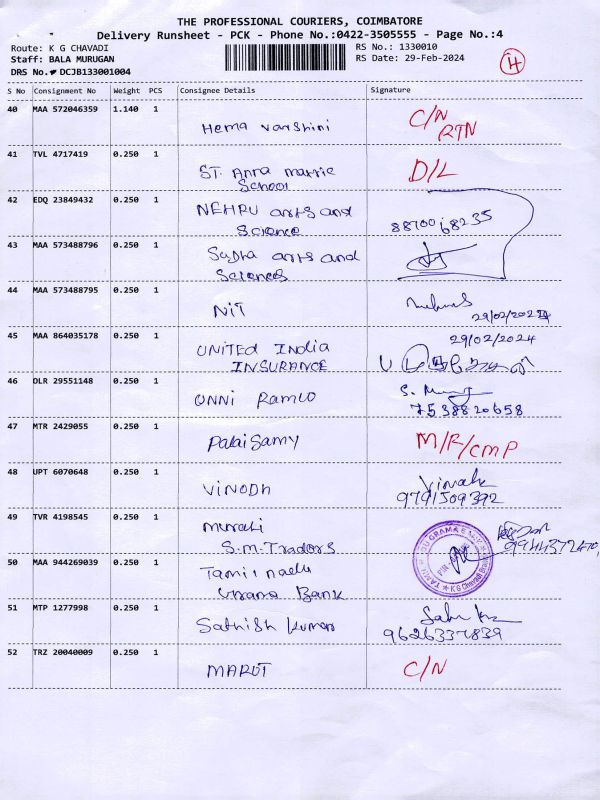 THE PROFESSIONAL COURIERS, COIMBATORE
Delivery Runsheet - PCK - Phone No.:0422-3505555 - Page No.:4
Route: K G CHAVADI
RS No.: 1330010
Staff: BALA MURUGAN
RS Date: 29-Feb-2024
DRS No. DCJB133001004
S No Consignment No Weight PCS Consignee Details Signature
40 MAA 572046359 1.140 1 Hema varshini C/N RTN
41 TVL 4717419 0.250 1 ST. Anna matric School D/L
42 EDQ 23849432 0.250 1 NEHRU arts and Science 8870068235
43 MAA 573488796 0.250 1 arts and Sciences
44 MAA 573488795 0.250 1 NIT 29/02/2024
45 MAA 864035178 0.250 1 UNITED India INSURANCE 29/02/2024
46 DLR 29551148 0.250 1 UNNi 7538820658
47 MTR 2429055 0.250 1 Palaisamy M/R/CMP
48 UPT 6070648 0.250 1 VINODh 9791509392
49 TVR 4198545 0.250 1 murali S.M. Tradors
50 MAA 944269039 0.250 1 Tamil nadu Grama Bank
51 MTP 1277998 0.250 1 Sathish Kumar 9626337839
52 TRZ 20040009 0.250 1 C/N